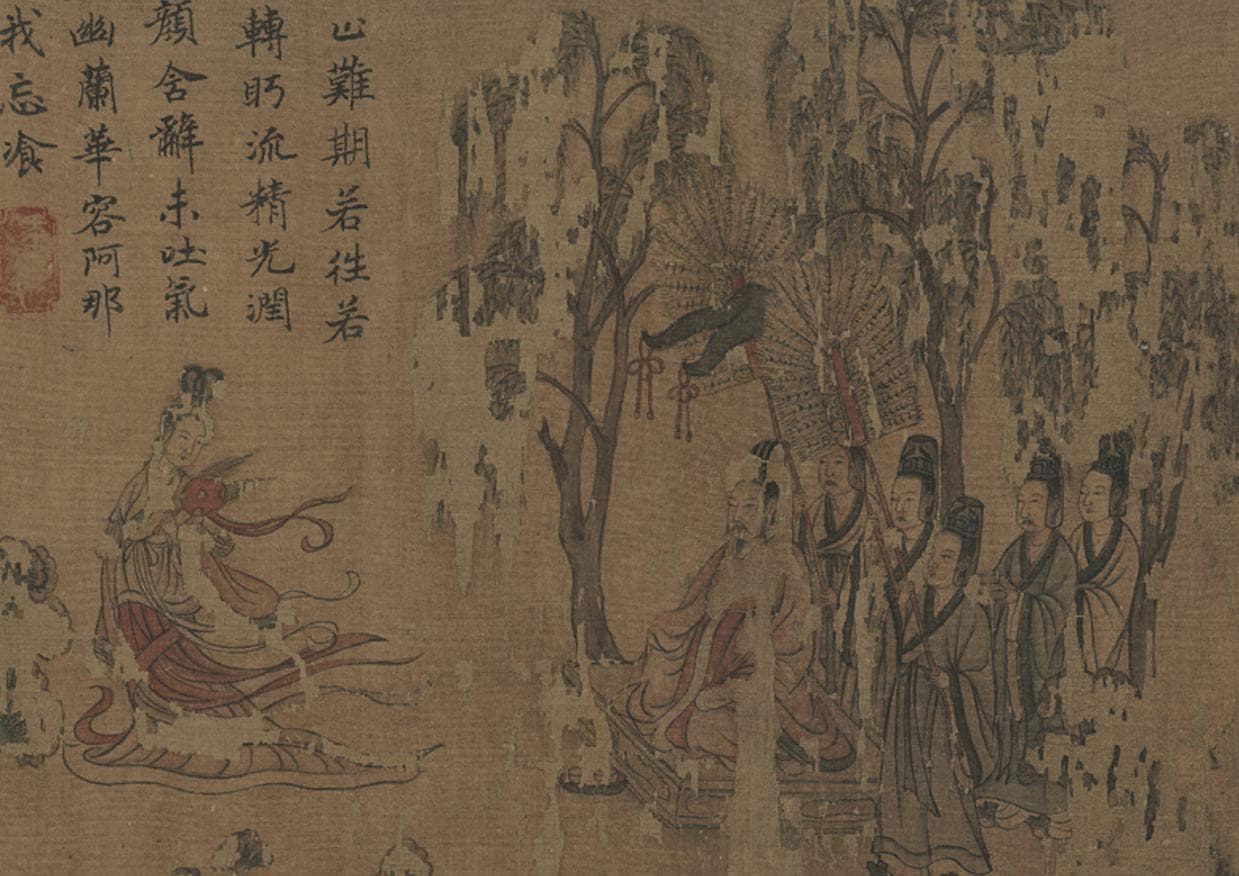 止難期若往若
轉眄流精光潤
顏含辭未吐氣
幽蘭華容阿那
我忘飡